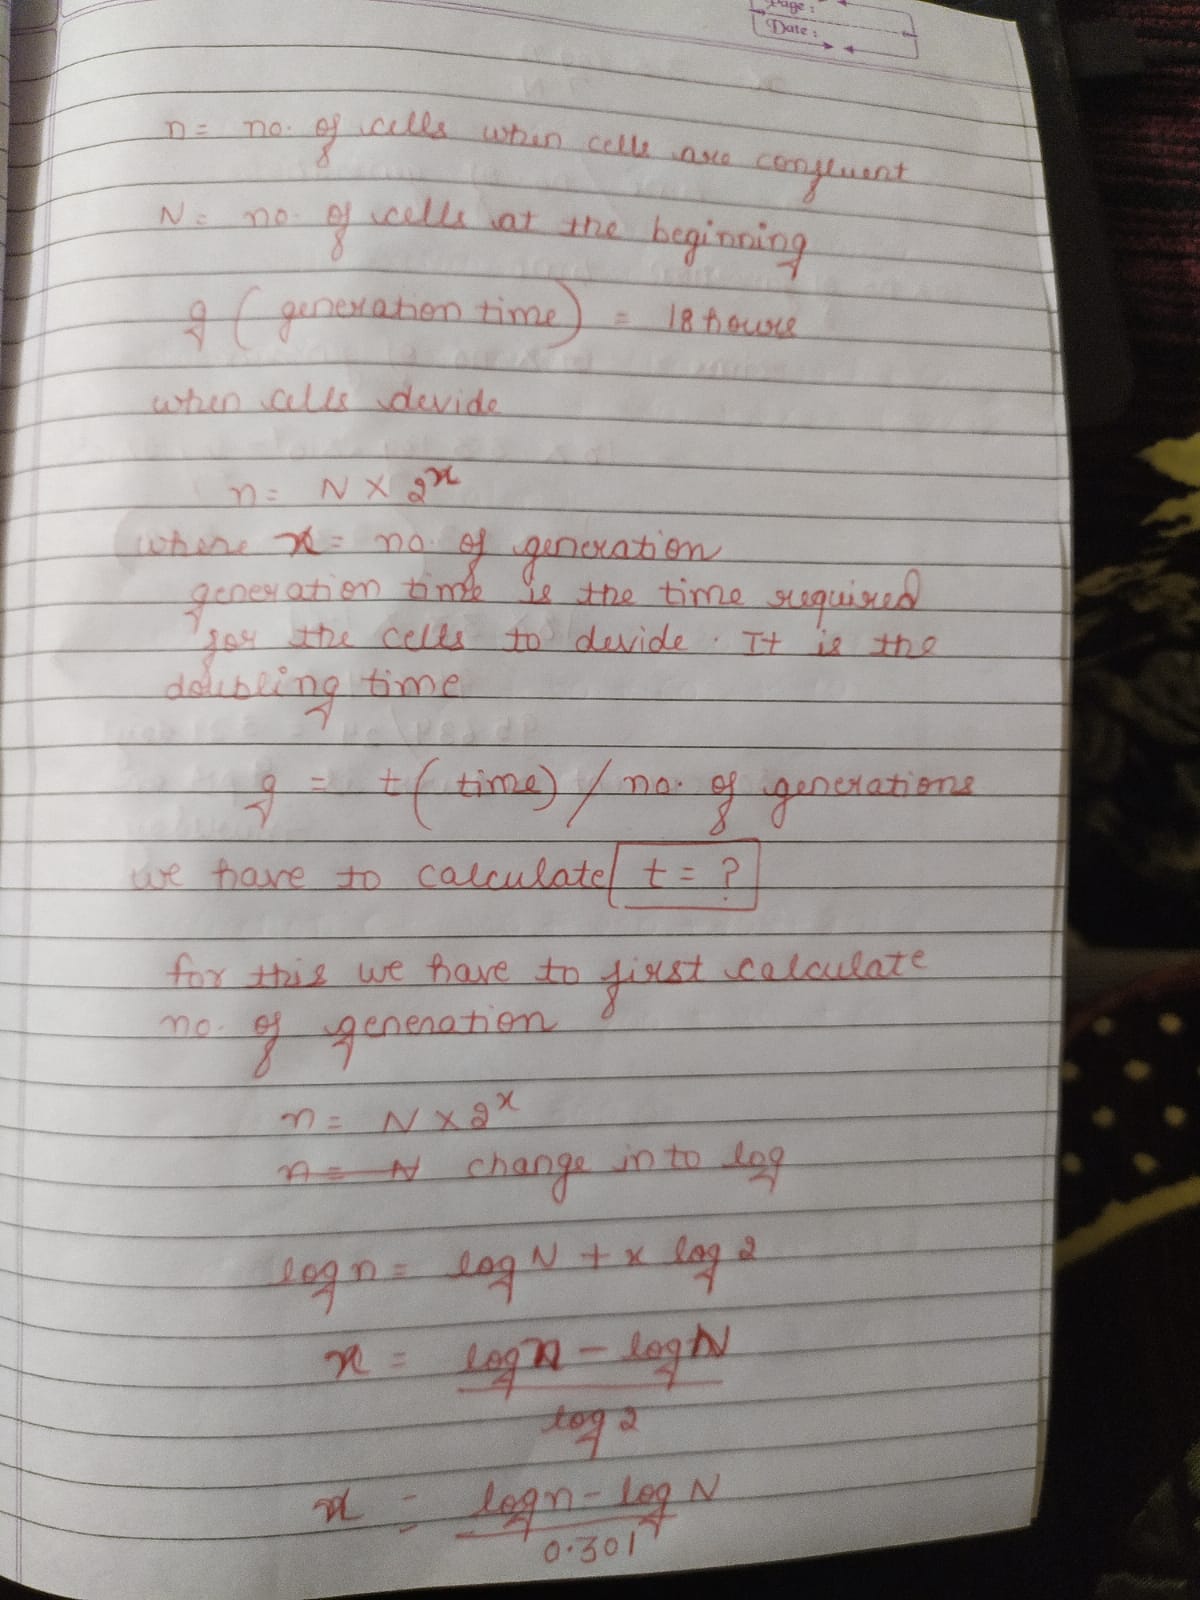 Page :
Date :
n = no. of cells when cells are confluent
N = no. of cells at the beginning
g ( generation time ) = 18 hours
when cells devide
n = N × 2^x
where x = no. of generation
generation time is the time required
for the cells to devide. It is the
doubling time
g = t ( time ) / no. of generations
we have to calculate t = ?
for this we have to first calculate
no. of generation
n = N × 2^x
n = N change in to log
log n = log N + x log 2
x = log n - log N
log 2
x = log n - log N
0.301